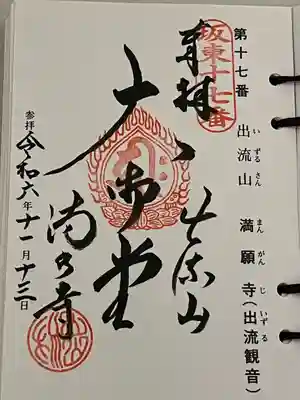 第十七番
出流山 満願寺(出流観音)
いずるさん まんがんじ いずる
坂東十七番
奉拝
出流山
大御堂
満願寺
参拝 令和六年十一月十三日